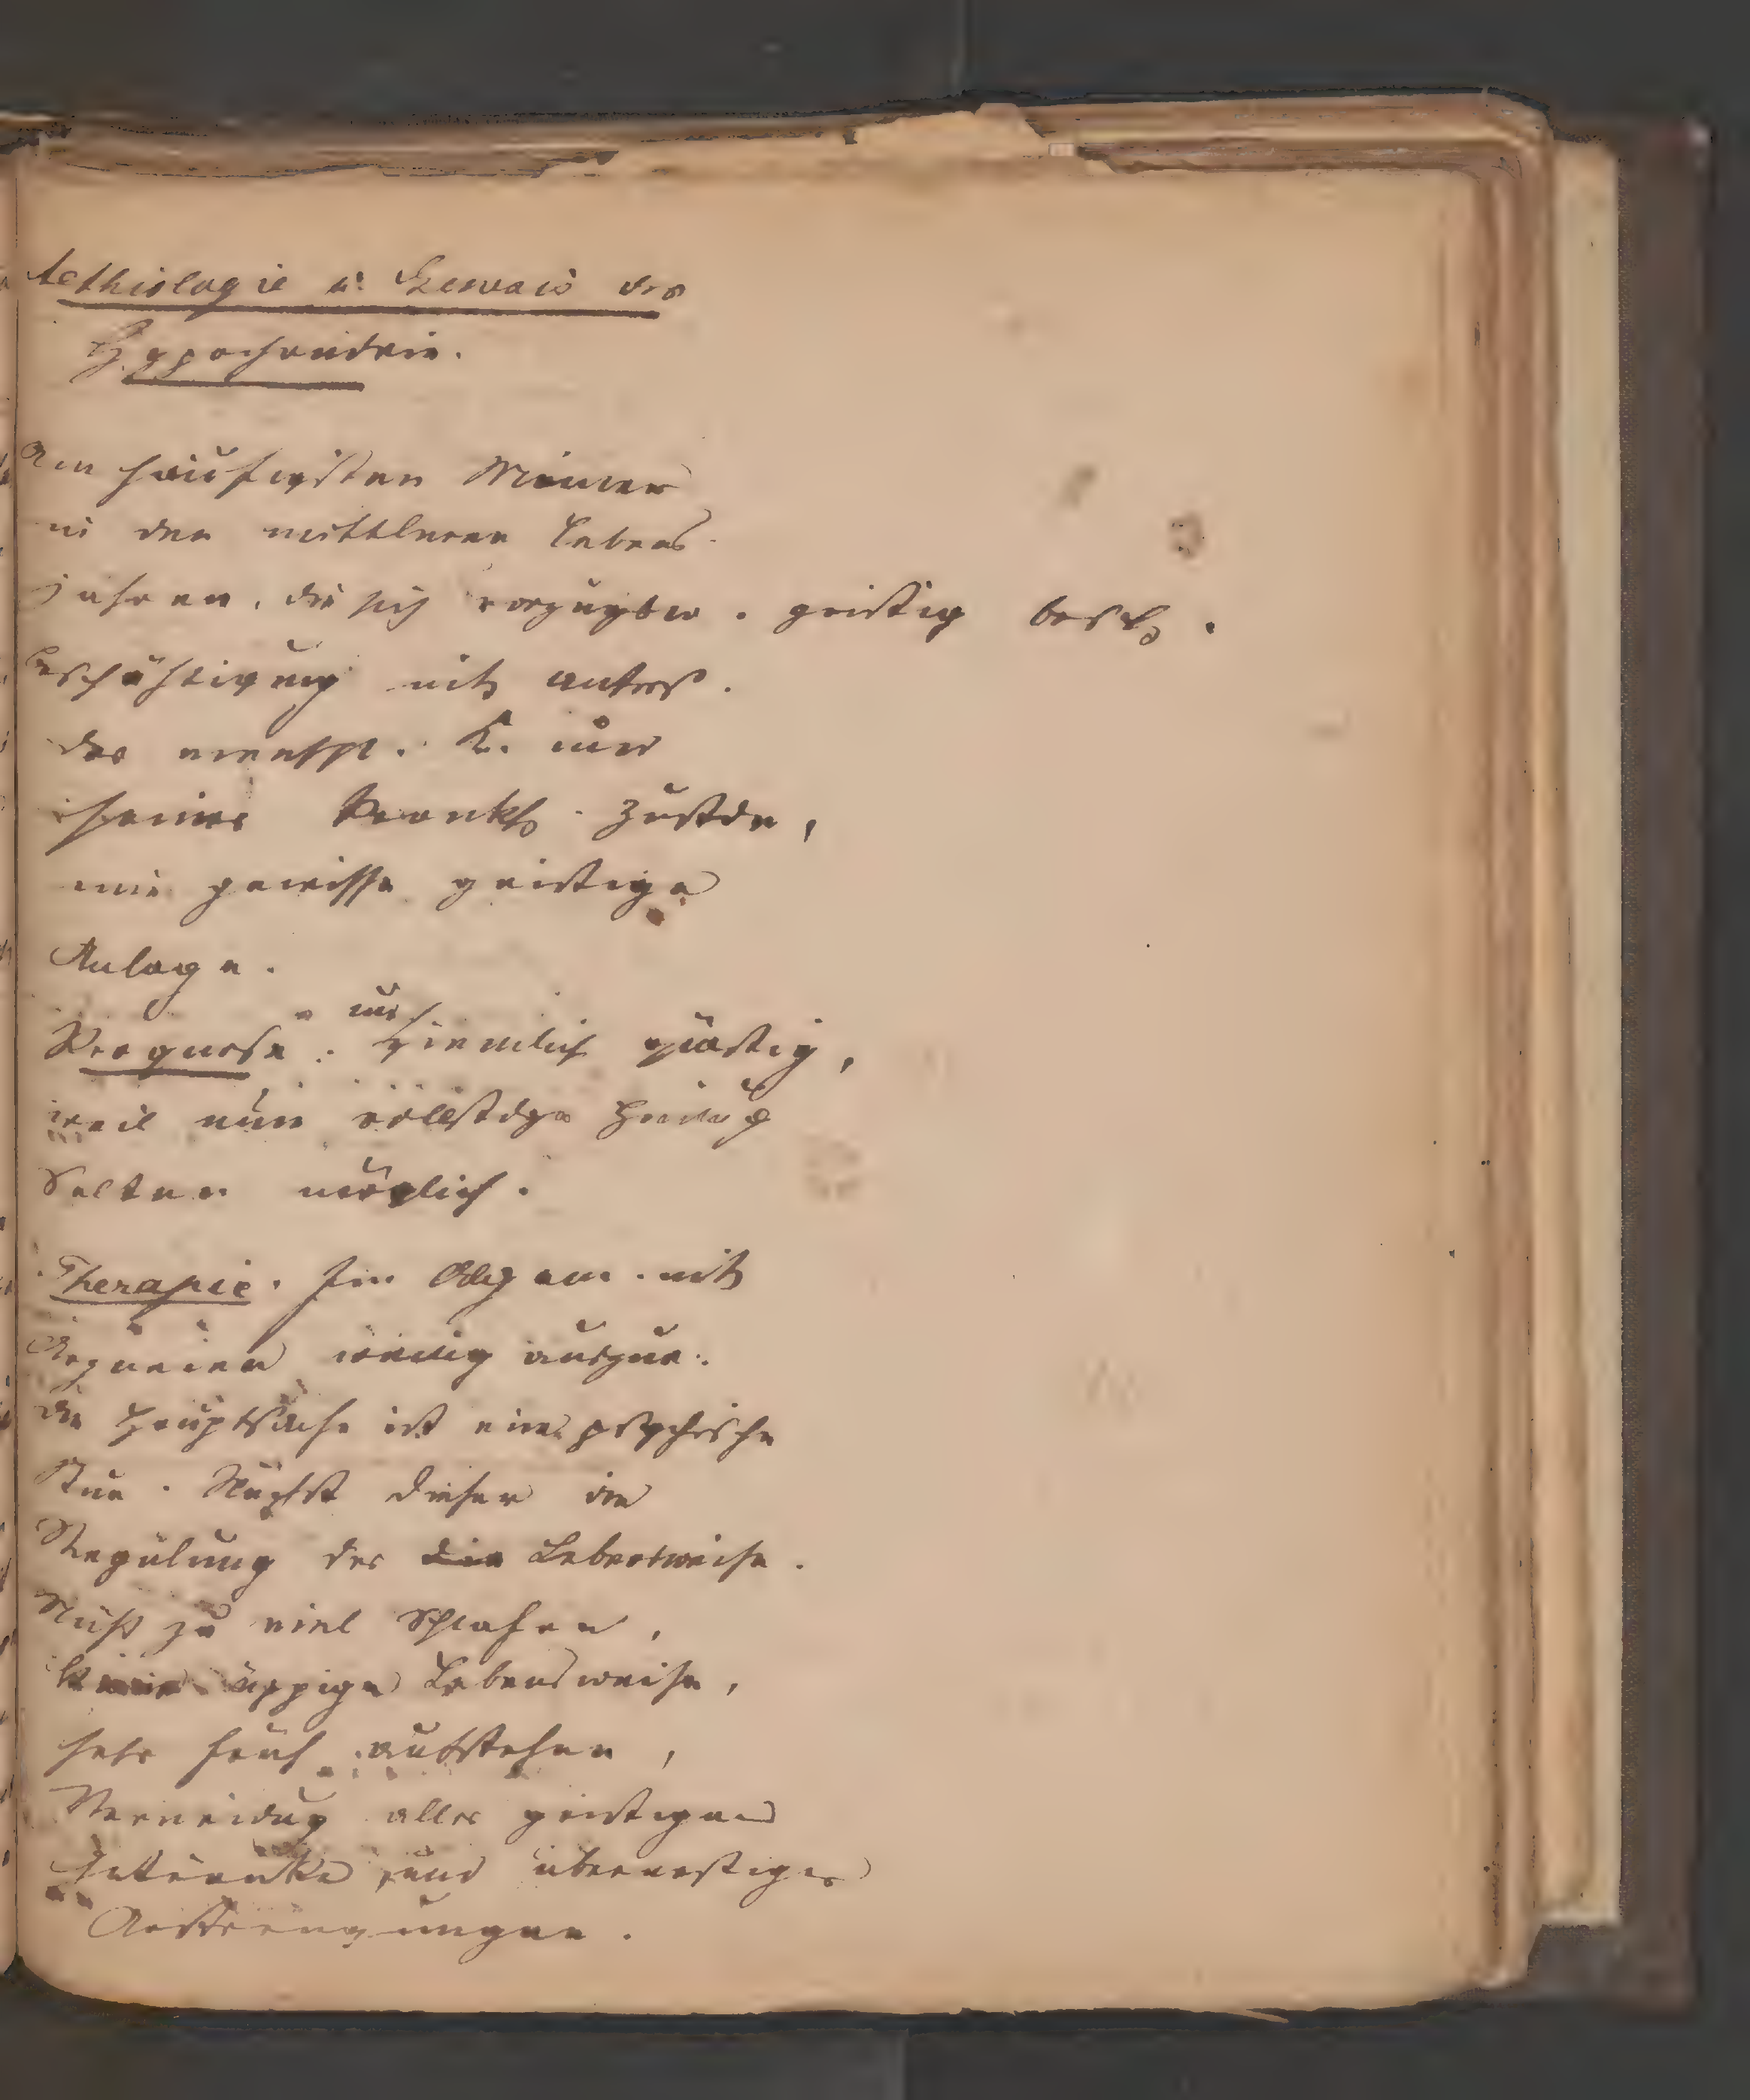 Aethiologie u. der
Hypochondrie.
Am häufigsten Männer
in den mittleren Lebens-
jahren, die sich vorzugsw. geistig besch.
Beschäftigung mit
des menschl. K. und
seiner Krankh. Zustde,
wie gewisse geistige
Anlage.
Prognose: nur ziemlich günstig,
weil eine vollstdge Heilung
Selten möglich.
Therapie. Im Allgem. mit
Arzneien wenig
die Hauptsache ist eine psychische
Kur. Nächst dieser die
Regulung der die Lebensweise.
Nicht zu viel Schlafen,
keine üppige Lebensweise,
sehr früh aufstehen,
Vermeidug aller geistigen
Getränke und
Anstrengungen.